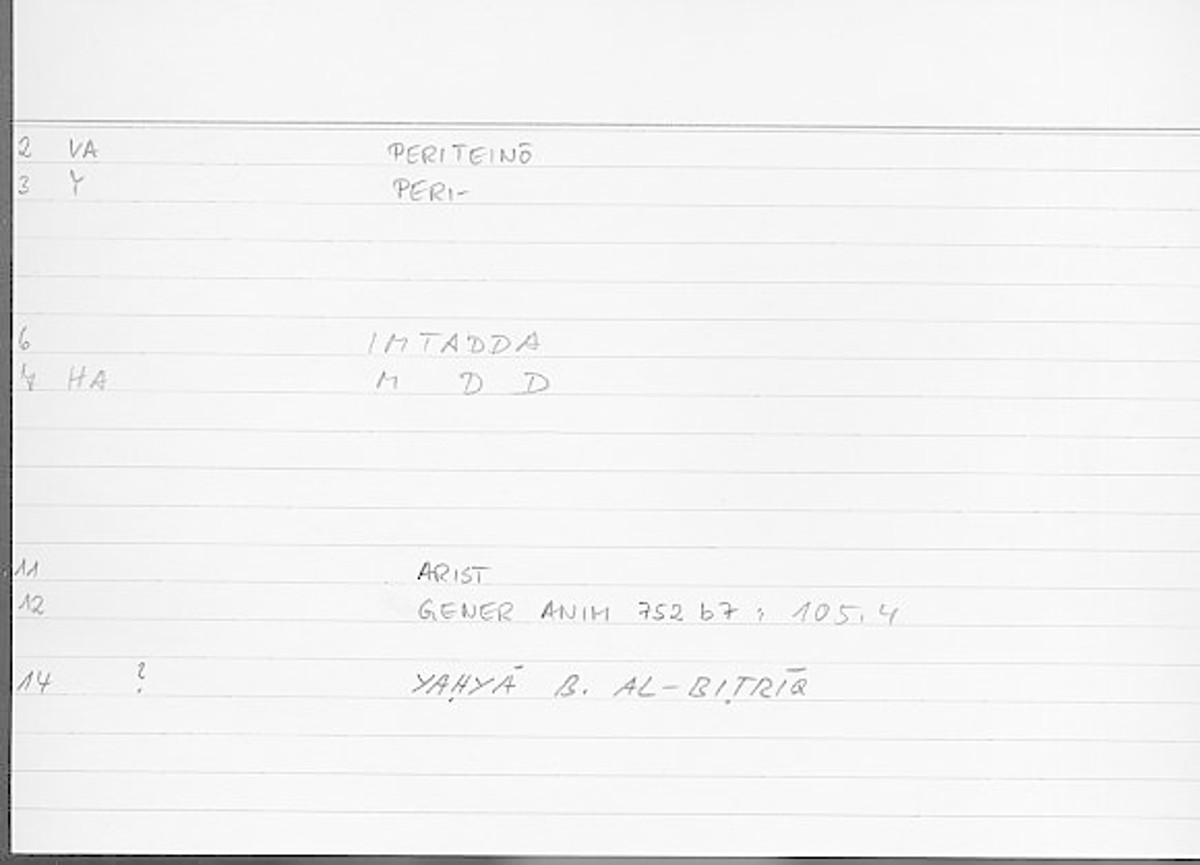 2 VA PERITEINŌ
3 Y PERI-
6 IMTADDA
7 HA M D D
11 ARIST
12 GENER ANIM 752 b7 ; 105.4
14 ? YAḤYĀ B. AL-BIṬRĪQ